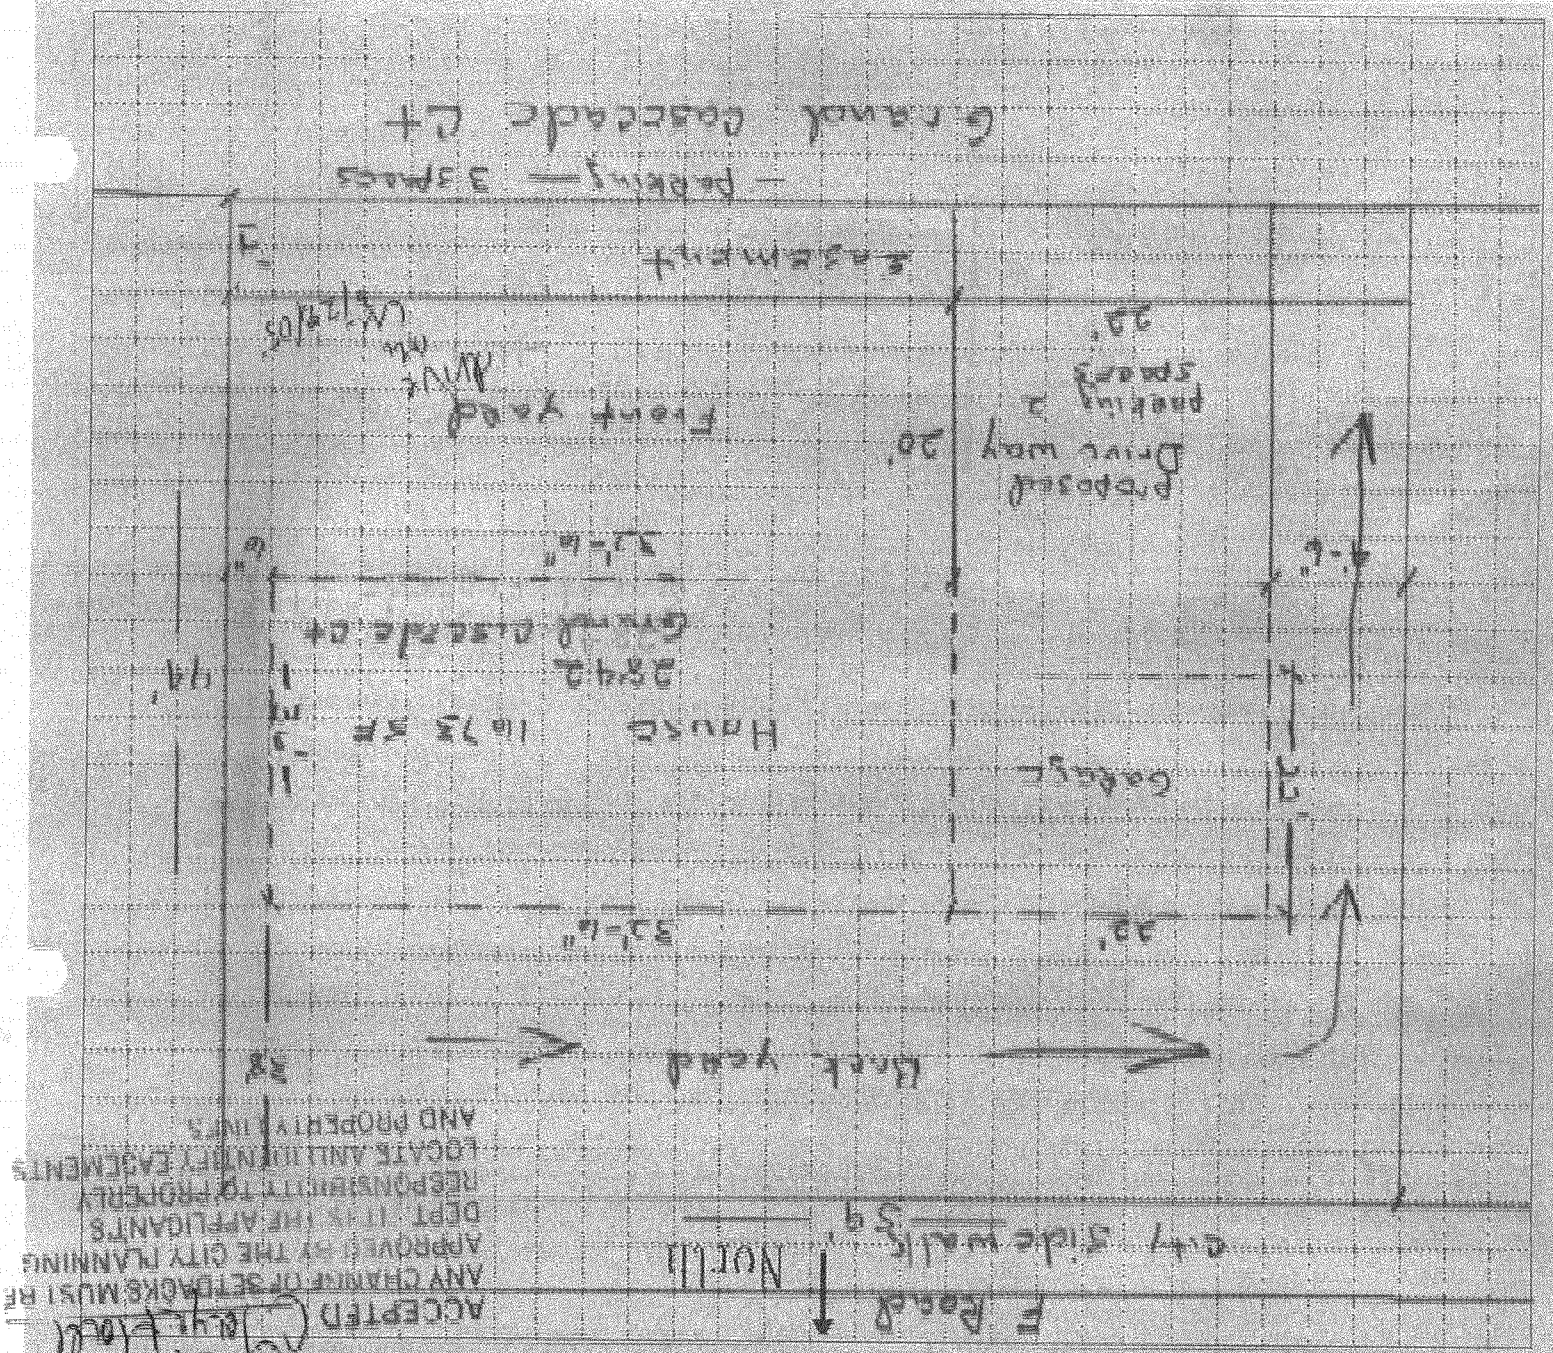 ACCEPTED
ANY CHANGE OF SETBACKS MUST BE
APPROVED BY THE CITY PLANNING
DEPT. IT IS THE APPLICANT'S
RESPONSIBILITY TO PROPERLY
LOCATE AND IDENTIFY EASEMENTS
AND PROPERTY LINES
F Road
North
City Side walk 59'
Back yard
38'
22'
32'-6"
Garage
House 1673 SF
2842
Grand Cascade Ct
44'
32'-6"
6"
4'-6"
proposed
Drive way
parking 2
spaces
22'
20'
Front yard
drive
Easement
parking = 3 spaces
Grand Casccade Ct